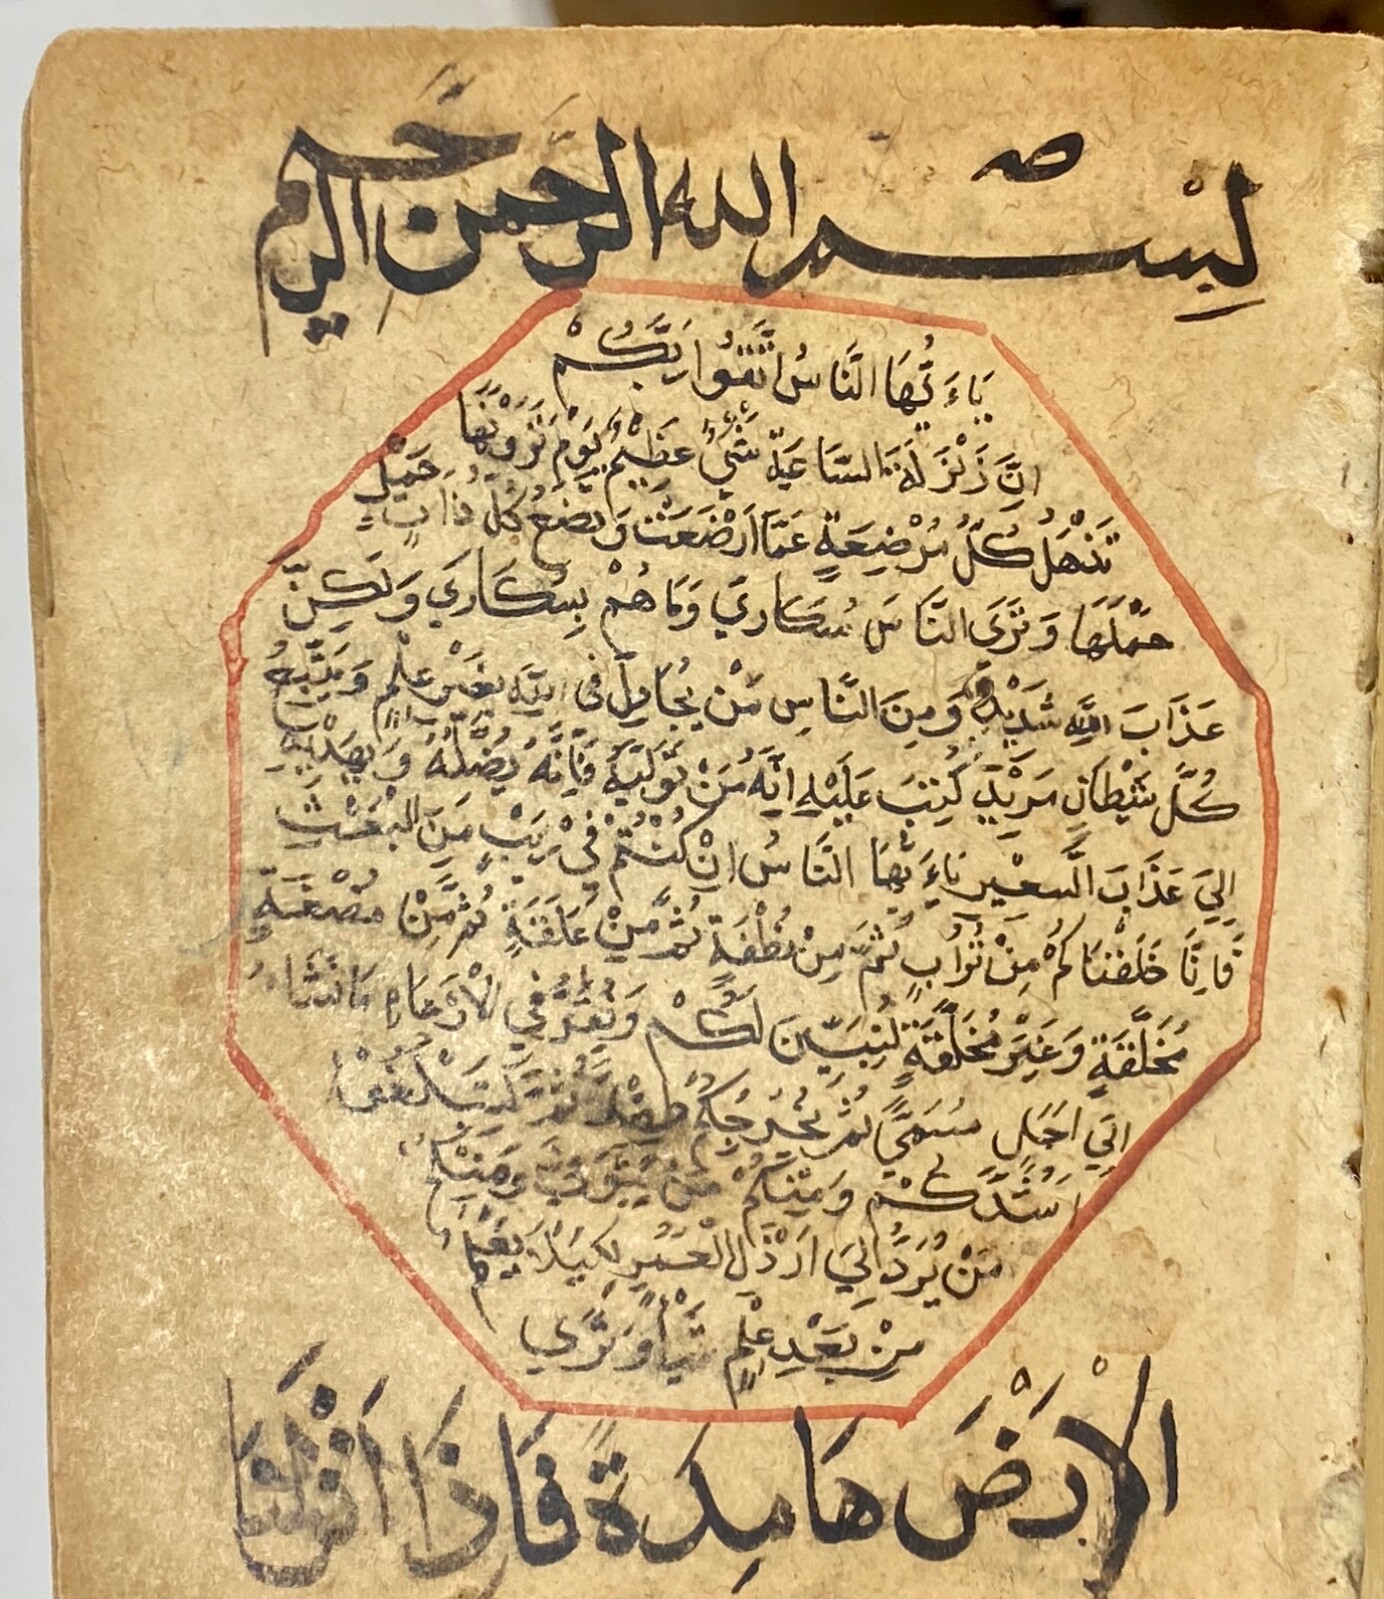 بِسْمِ اللهِ الرَّحْمنِ الرَّحِيمِ
يَاءَيُّهَا النَّاسُ اتَّقُوا رَبَّكُمْ
اِنَّ زَلْزَلَةَ السَّاعَةِ شَيْءٌ عَظِيمٌ يَوْمَ تَرَوْنَهَا
تَذْهَلُ كُلُّ مُرْضِعَةٍ عَمَّا اَرْضَعَتْ وَتَضَعُ كُلُّ ذَاتِ حَمْلٍ
حَمْلَهَا وَتَرَى النَّاسَ سُكَارَي وَمَا هُمْ بِسُكَارَي وَلَكِنَّ
عَذَابَ اللهِ شَدِيْدٌ وَمِنَ النَّاسِ مَنْ يُجَادِلُ فِى اللهِ بِغَيْرِ عِلْمٍ وَيَتَّبِعُ
كُلَّ شَيْطَانٍ مَرِيْدٍ كُتِبَ عَلَيْهِ اَنَّهُ مَنْ تَوَلَّيهُ فَاَنَّهُ يُضِلُّهُ وَيَهْدِيْهِ
اِلَيَ عَذَابَ السَّعِيْرِ يَاءَيُّهَا النَّاسُ اِنْ كُنْتُمْ فِيْ رَيْبٍ مِنَ الْبَعْثِ
فَاِنَّا خَلَقْنَاكُمْ مِنْ تُرَابٍ ثُمَّ مِنْ نُطْفَةٍ ثُمَّ مِنْ عَلَقَةٍ ثُمَّ مِنْ مُضْغَةٍ
مُخَلَّقَةٍ وَغَيْرِ مُخَلَّقَةٍ لِنُبَيِّنَ لَكُمْ وَنُقِرُّ فِي الْاَرْحَامِ مَا نَشَاءُ
اِلَي اَجَلٍ مُسَمًّي ثُمَّ نُخْرِجُكُمْ طِفْلًا ثُمَّ لِتَبْلُغُوْا
اَشُدَّكُمْ وَمِنْكُمْ مَنْ يُتَوَفَّي وَمِنْكُمْ
مَنْ يُرَدُّ اِلَيَ اَرْذَلِ الْعُمُرِ لِكَيْلَا يَعْلَمَ
مِنْ بَعْدِ عِلْمٍ شَيْأً وَتَرَي
الْاَرْضَ هَامِدَةً فَاِذَا اَنْزَلْنَا